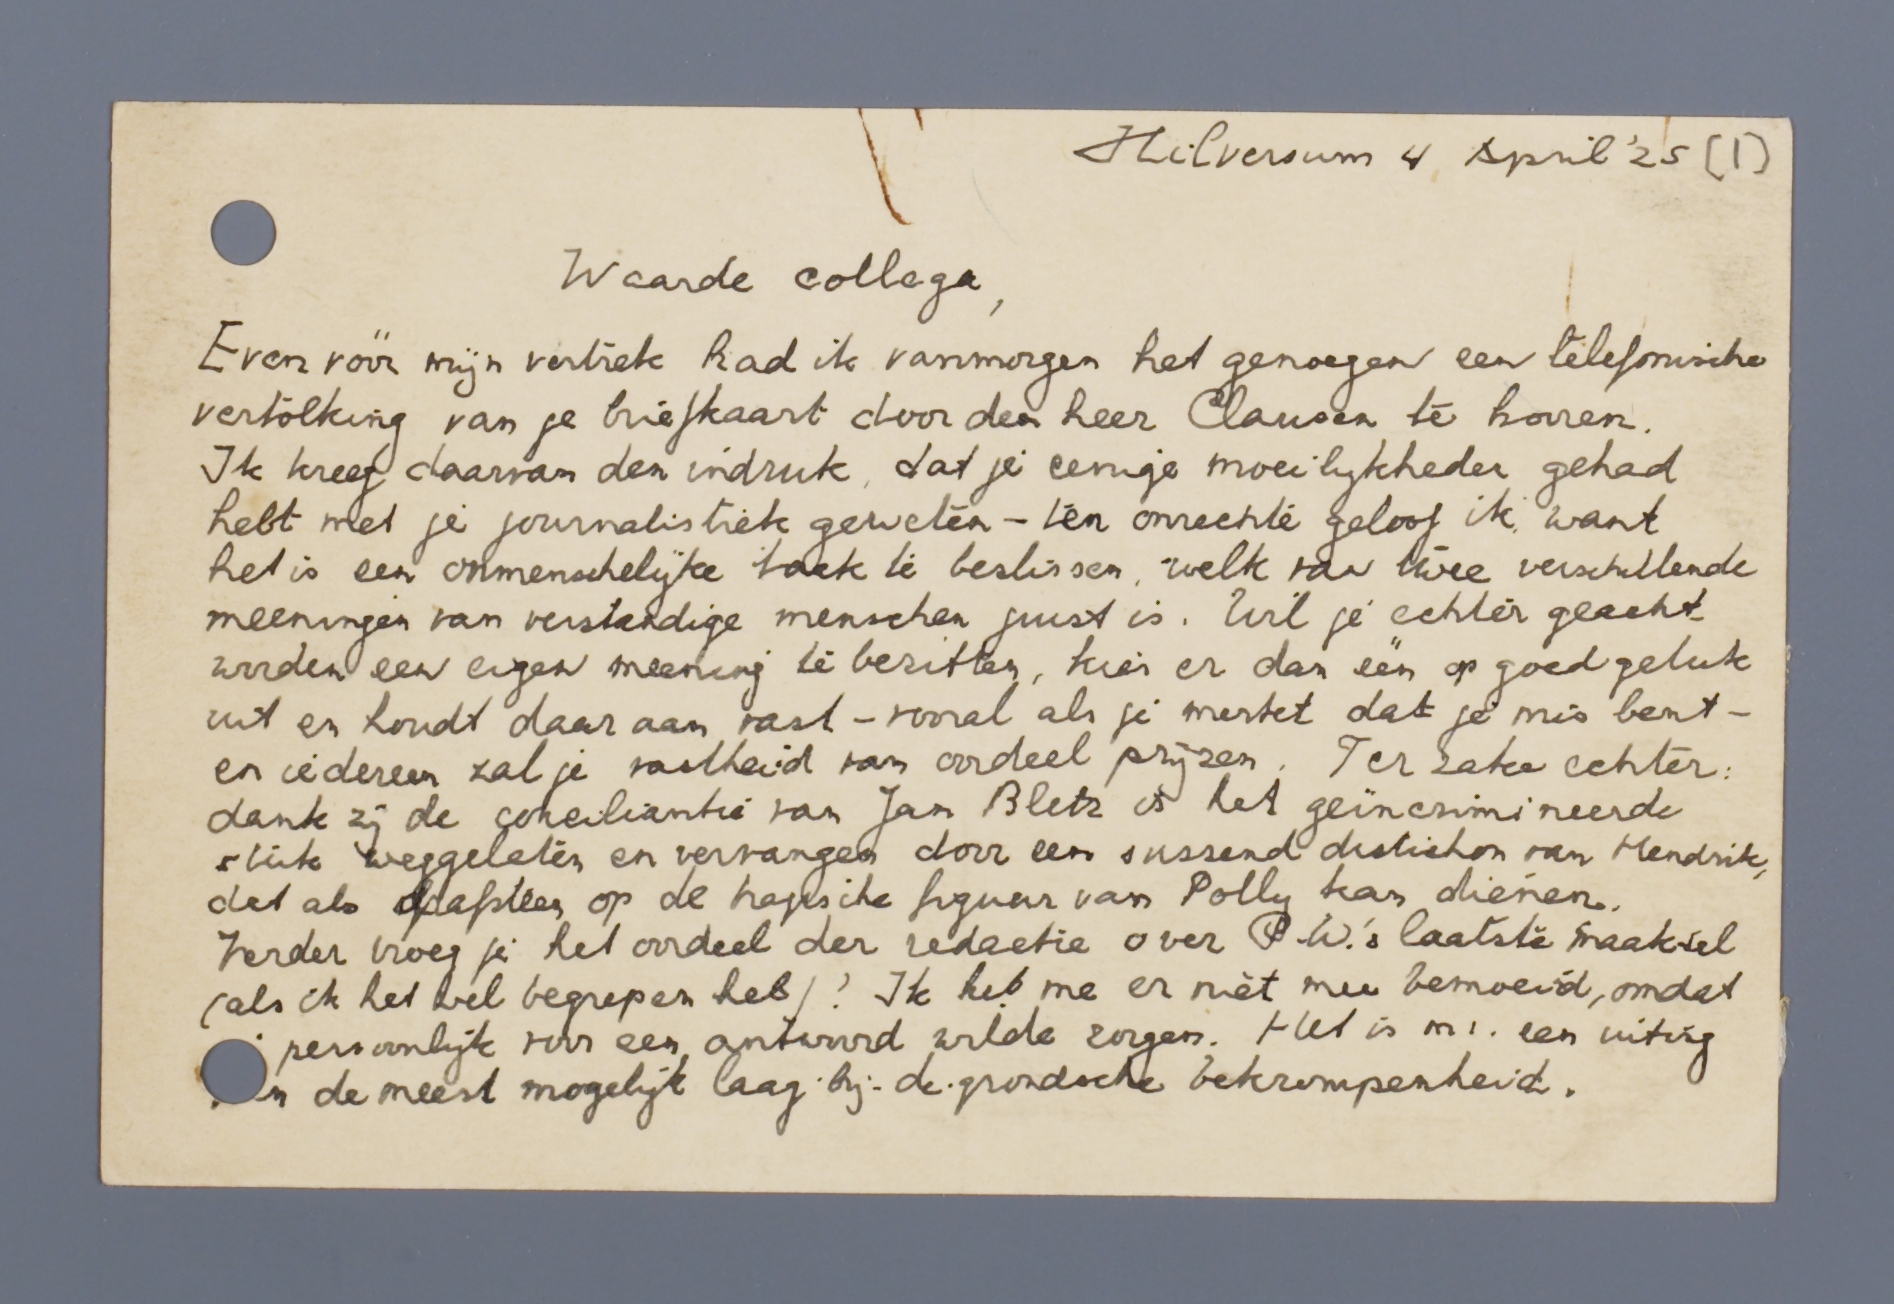 Hilversum 4 April '25 [1]
Waarde collega,
Even vóór mijn vertrek had ik vanmorgen het genoegen een telefonische
vertolking van je briefkaart door den heer Clausen te hooren.
Ik kreeg daarvan den indruk, dat je eenige moeilijkheden gehad
hebt met je journalistiek geweten – ten onrechte geloof ik, want
het is een onmenschelijke taak te beslissen, welk van twee verschillende
meeningen van verstandige menschen juist is. Wil je echter geacht
worden een eigen meening te bezitten, kies er dan één op goed geluk
uit en houdt daar aan vast – vooral als je merkt dat je mis bent –
en iedereen zal je vastheid van oordeel prijzen. Ter zake echter:
dank zij de conciliantie van Jan Bletz is het geïncrimineerde
stuk weggelaten en vervangen door een sussend distichon van Hendrik,
dat als grafsteen op de tragische figuur van Polly kan dienen.
Verder vroeg je het oordeel der redactie over P.W.'s laatste maaksel
(als ik het wel begrepen heb)? Ik heb me er niet mee bemoeid, omdat
persoonlijk voor een antwoord wilde zorgen. Het is m.i. een uiting
de meest mogelijk laag-bij-de-grondsche bekrompenheid.